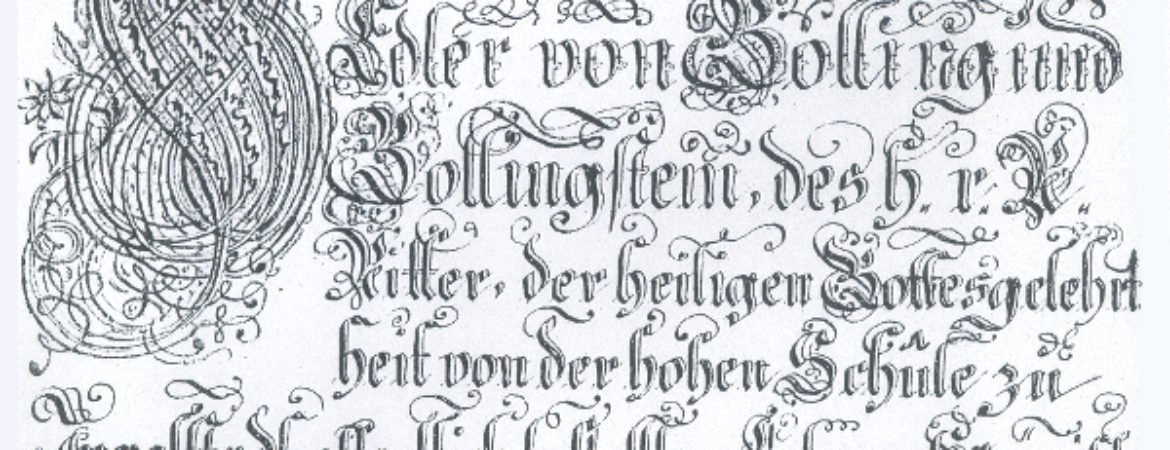 Edler von Bolling und
Bollingstein, des h. r. R.
Ritter, der heiligen Gottesgelehrt
heit von der hohen Schule zu